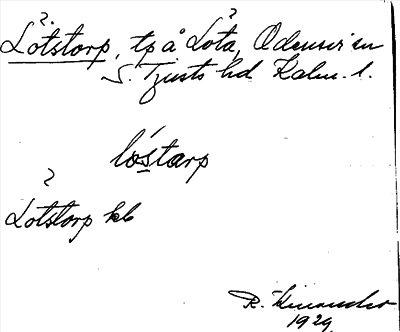 ?  ?
Lötstorp, tp å Löta, Odensvi sn
S. Tjusts hd Kalm. l.
lóstarp
?
Lotstorp kb
R.
1929.